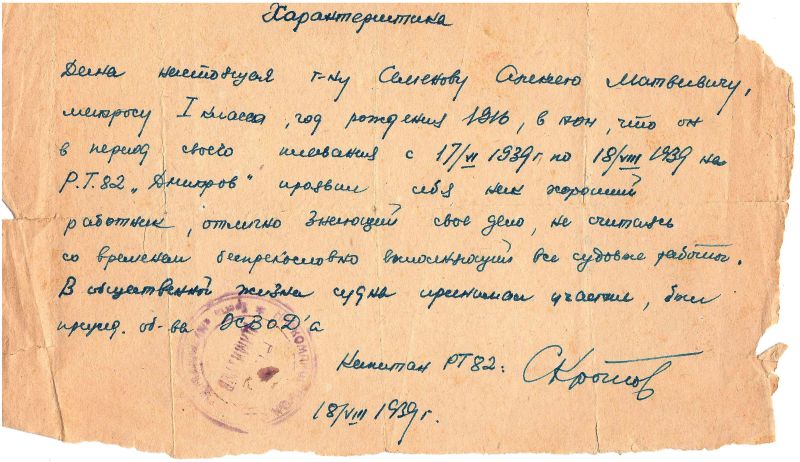 Характеристика
Дана настоящая г-ну Семенову Алексею Матвеевичу,
матросу I класса, год рождения 1910, в том, что он
в период своего плавания с 17/VI 1939 г. по 18/VIII 1939 на
Р.Т. 82 „Дмитров" проявил себя как хороший
работник, отлично знающий свое дело, не считаясь
со временем беспрекословно выполняющий все судовые работы.
В общественной жизни судна принимал участие, был
председ. об-ва ОСВОД'а
Капитан РТ 82:
18/VIII 1939 г.